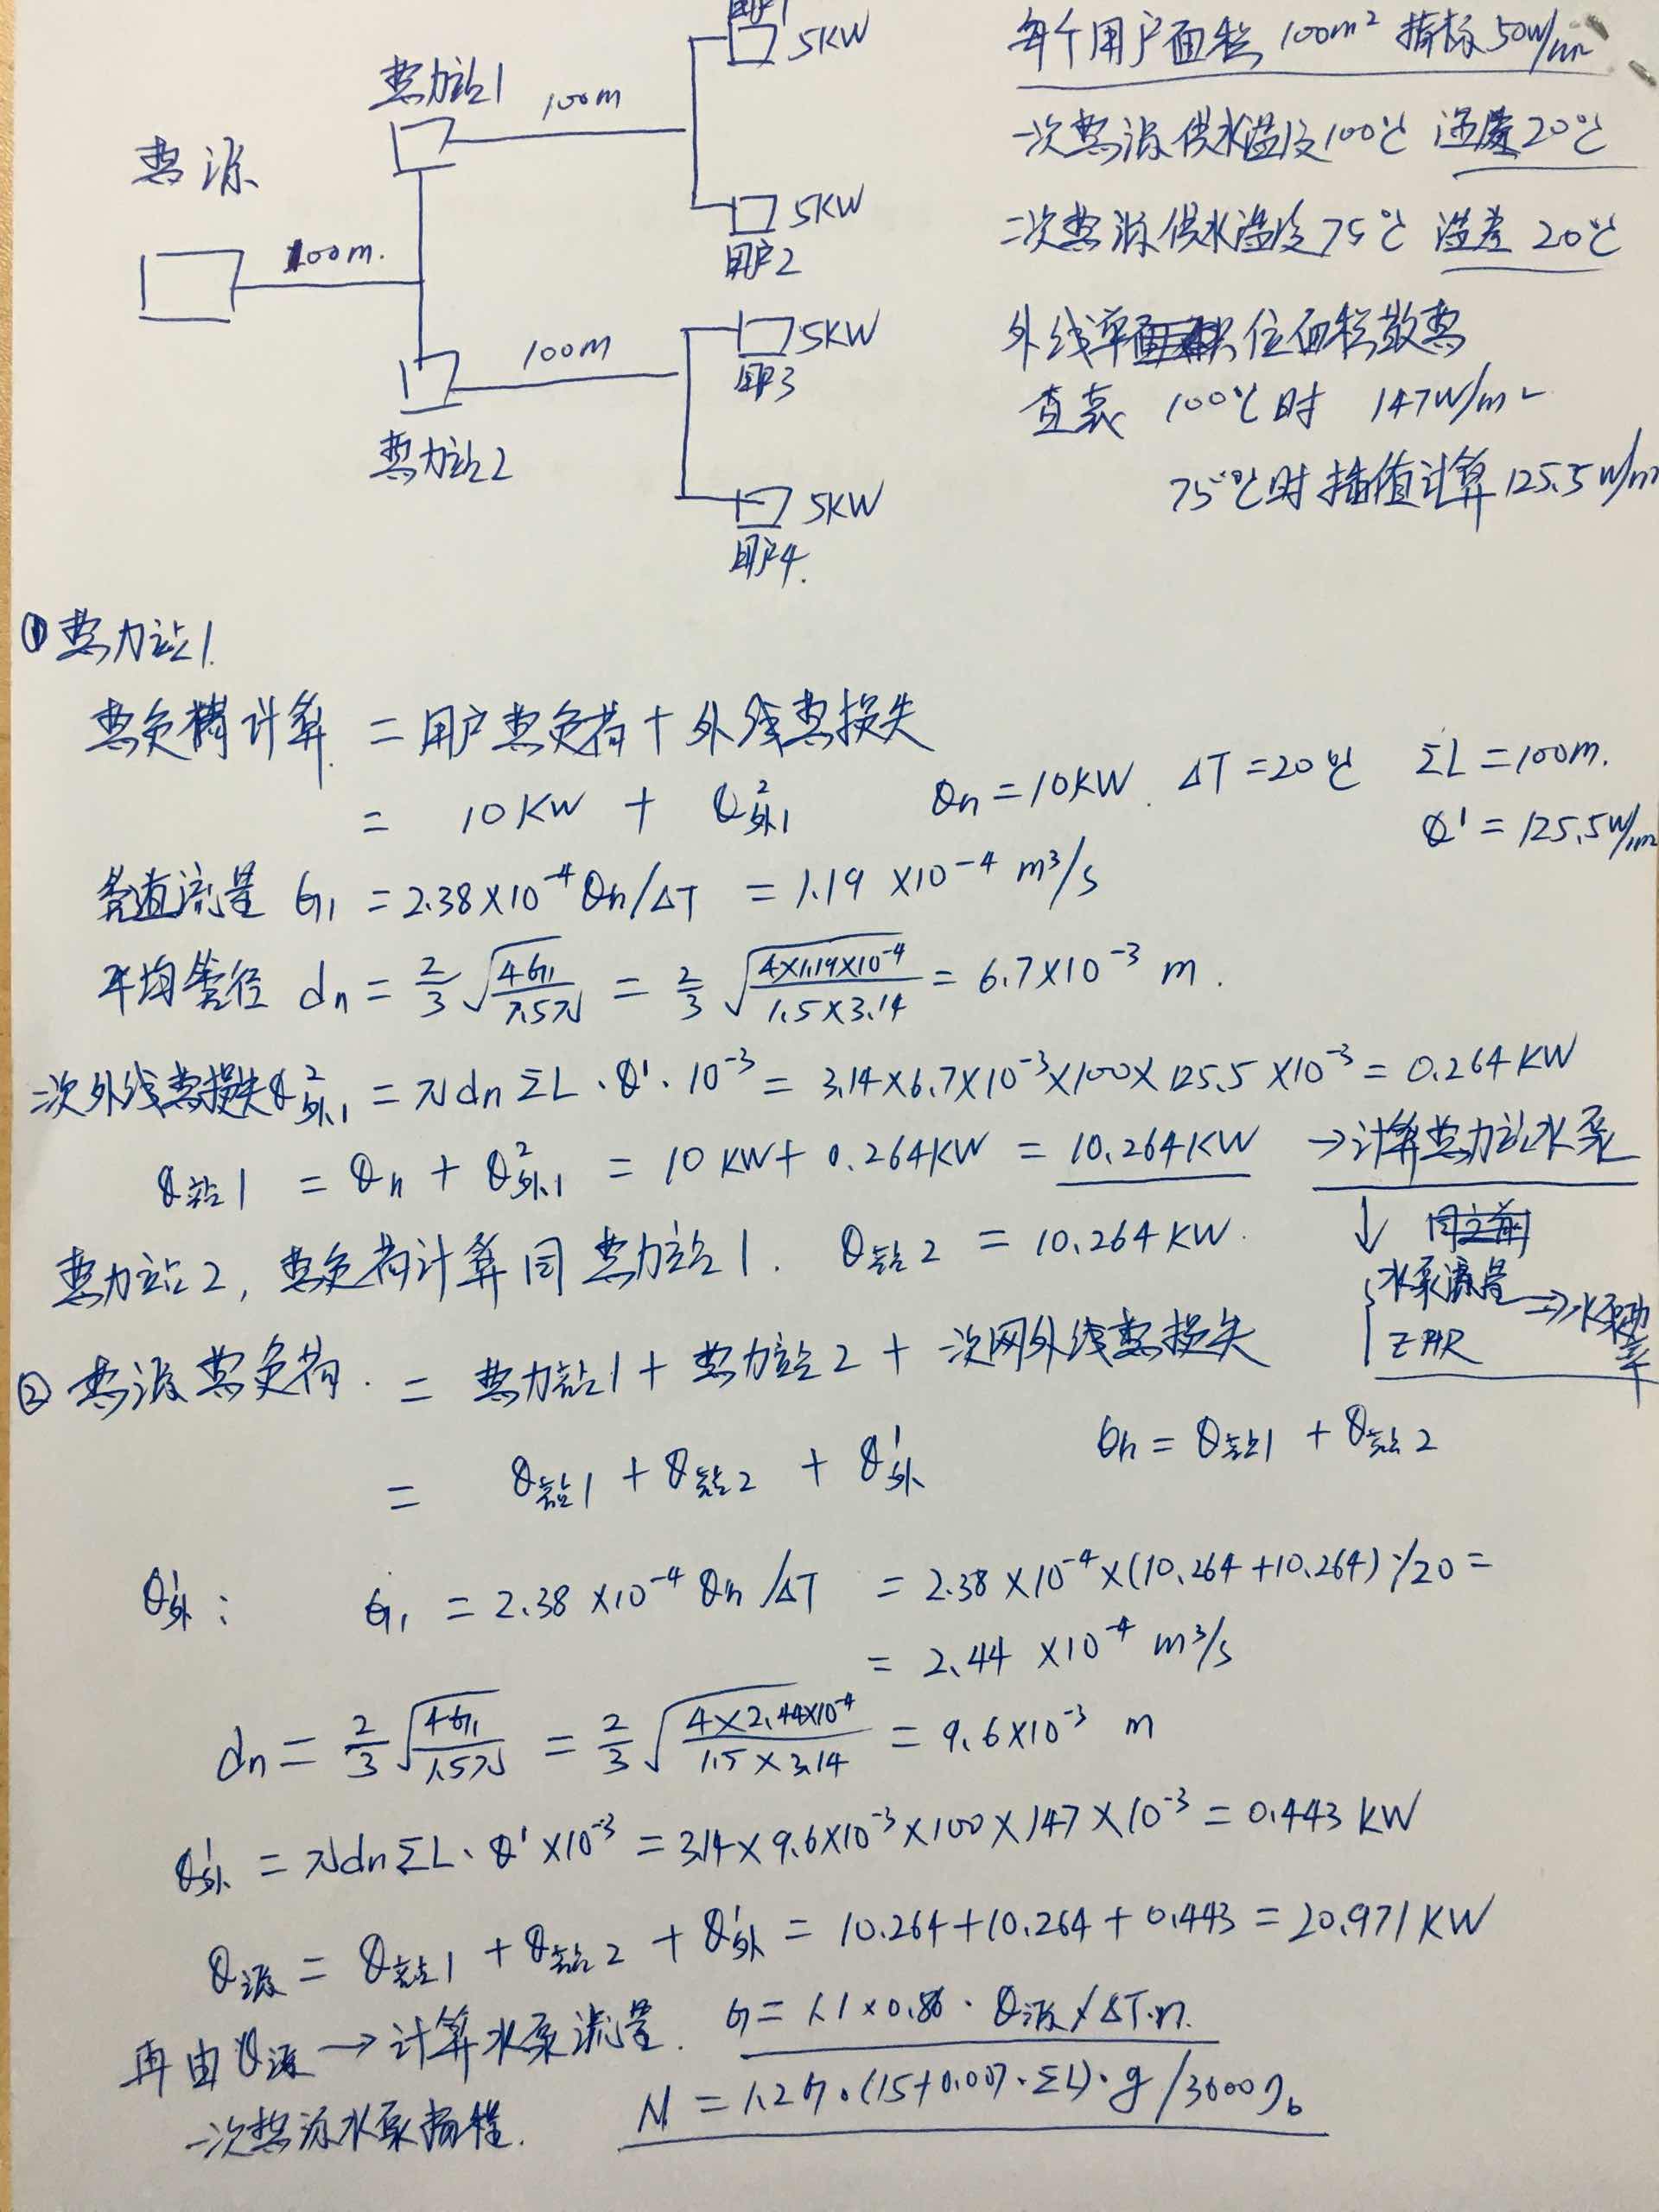 用户1
5KW
每个用户面积 100m² 指标 50W/m²
热力站1
100m
一次热源供水温度100℃ 温度20℃
热源
5KW
用户2
二次热源供水温度75℃ 温差 20℃
100m.
5KW
用户3
外线单位面积散热
100m
查表 100℃时 147W/m²
热力站2
75℃时 插值计算 125.5W/m²
5KW
用户4.
① 热力站1.
热负荷计算 = 用户热负荷 + 外线热损失
= 10KW + Q²外1 Qn = 10KW. ΔT = 20℃ ΣL = 100m.
Q' = 125.5W/m²
管道流量 G1 = 2.38×10⁻⁴ Qn/ΔT = 1.19 ×10⁻⁴ m³/s
平均管径 dn = 2/3 √(4G1/1.5π) = 2/3 √(4×1.19×10⁻⁴/1.5×3.14) = 6.7×10⁻³ m.
二次外线热损失Q²外1 = πdnΣL·Q'·10⁻³ = 3.14×6.7×10⁻³×100×125.5×10⁻³ = 0.264KW
Q站1 = Qn + Q²外1 = 10KW + 0.264KW = 10.264KW → 计算热力站水泵
热力站2, 热负荷计算同热力站1. Q站2 = 10.264KW.
↓
水泵流量 → 水泵功率
② 热源热负荷. = 热力站1 + 热力站2 + 一次网外线热损失
= Q站1 + Q站2 + Q¹外 Qn = Q站1 + Q站2
Q¹外: G1 = 2.38×10⁻⁴ Qn/ΔT = 2.38×10⁻⁴×(10.264+10.264)/20 =
= 2.44×10⁻⁴ m³/s
dn = 2/3 √(4G1/1.5π) = 2/3 √(4×2.44×10⁻⁴/1.5×3.14) = 9.6×10⁻³ m
Q¹外 = πdnΣL·Q'×10⁻³ = 3.14×9.6×10⁻³×100×147×10⁻³ = 0.443KW
Q源 = Q站1 + Q站2 + Q¹外 = 10.264+10.264+0.443 = 20.971KW
再由Q源 → 计算水泵流量. G = 1.1×0.86·Q源/ΔT·n.
一次热源水泵扬程. N = 1.2G·(15+0.007·ΣL)·g/3600ηb